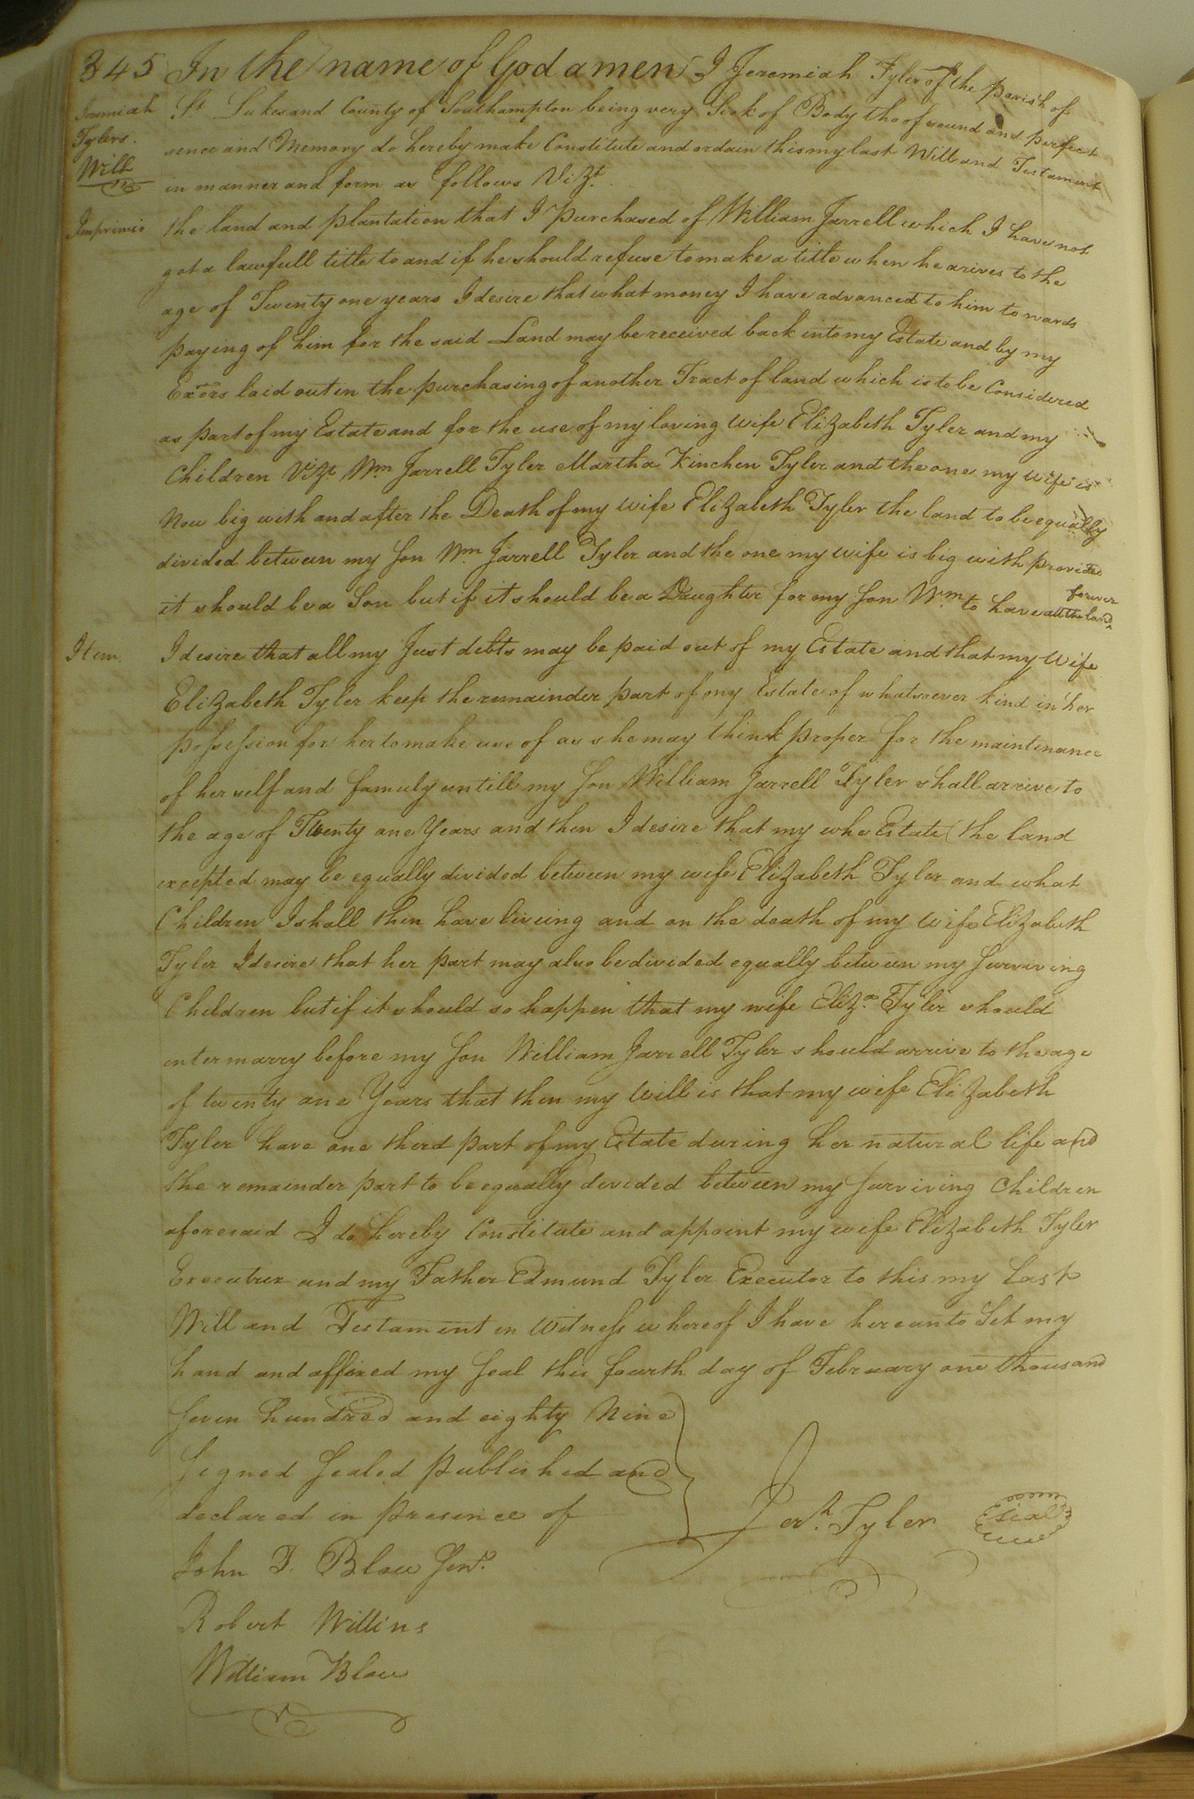 345 In the name of God amen I Jeremiah Tyler of the parish of
Jeremiah Tylers. Will
St. Lukes and County of Southampton being very Sick of Body tho of sound and perfect
sence and Memory do hereby make Constitute and ordain this my last Will and Testament
in manner and form as follows Vizt.
Imprimis the land and plantation that I purchased of William Jarrell which I have not
got a lawfull title to and if he should refuse to make a title when he arives to the
age of Twenty one years I desire that what money I have advanced to him towards
paying of him for the said Land may be received back into my Estate and by my
Exors laid out in the purchasing of another Tract of land which is to be Considered
as part of my Estate and for the use of my loving wife Elizabeth Tyler and my
Children Vizt Wm. Jarrell Tyler Martha Kinchen Tyler and the one my wife is
Now big with and after the Death of my wife Elizabeth Tyler the land to be equally
divided between my Son Wm. Jarrell Tyler and the one my wife is big with provided
it should be a Son but if it should be a Daughter for my Son Wm. to have all the land forever
Item. I desire that all my Just debts may be paid out of my Estate and that my Wife
Elizabeth Tyler keep the remainder part of my Estate of whatsoever kind in her
possession for her to make use of as she may think proper for the maintinance
of herself and famuly untill my Son William Jarrell Tyler shall arrive to
the age of Twenty one Years and then I desire that my whe Estate (the land
excepted may be equally divided between my wife Elizabeth Tyler and what
Children I shall then have liveing and on the death of my Wife Elizabeth
Tyler I desire that her part may also be divided equally between my Surviving
Children but if it should so happen that my wife Eliza. Tyler should
intermarry before my Son William Jarrell Tyler should arrive to the age
of twenty one Years that then my Will is that my wife Elizabeth
Tyler have one therd part of my Estate during her natural life and
the remainder part to be equally divided between my Surviving Children
aforesaid I do hereby Constitute and appoint my wife Elizabeth Tyler
Executrix and my Father Edmund Tyler Executor to this my Last
Will and Testament in Witness whereof I have hereunto Set my
hand and affixed my Seal this fourth day of February one thousand
Seven hundred and eighty Nine
Segned Sealed Published and
declared in presence of
Jerh. Tyler Seal
John T. Blow Senr.
Robert Willins
William Blow